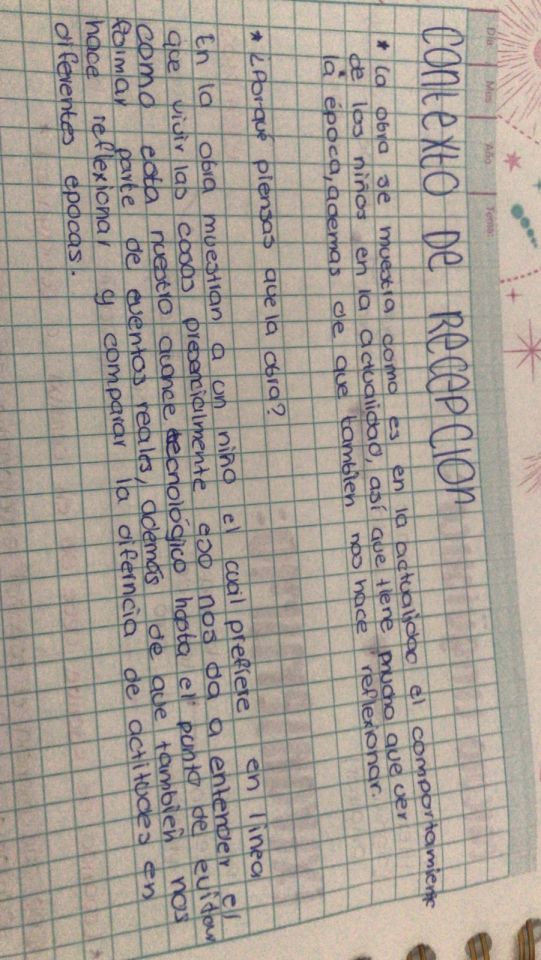 Día Mes Año Tema:
CONTEXTO DE RECEPCION
* La obra se muestra como es en la actualidad el comportamiento
de los niños en la actualidad, así que tiene mucho que ver
la época, ademas de que tambien nos hace reflexionar.
* ¿Porqué piensas que la obra?
En la obra muestran a un niño el cual prefiere en linea,
que vivir las cosas presencialmente eso nos da a entender el
como esta nuestro avance tecnológico hasta el punto de evitar
formar parte de eventos reales, además de que también nos
hace reflexionar y comparar la diferncia de actitudes en
diferentes epocas.